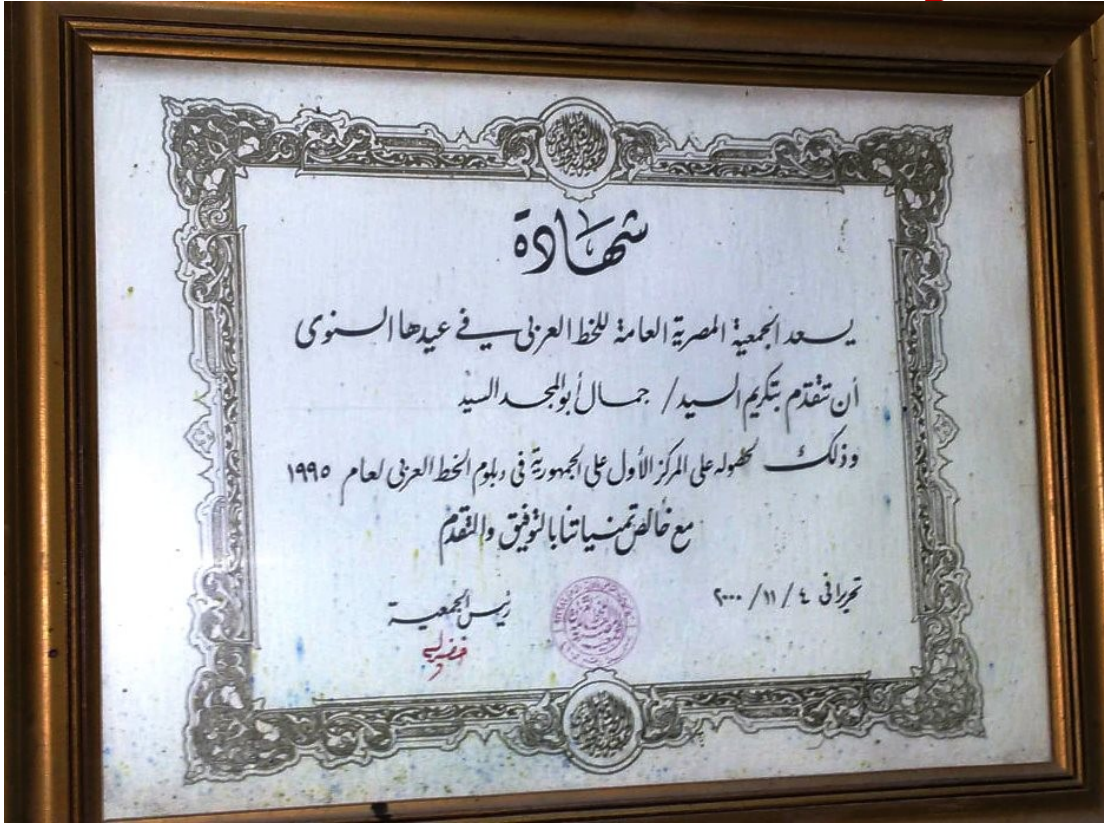 شهادة
يسعد الجمعية المصرية العامة للخط العربى فى عيدها السنوى
أن تتقدم بتكريم السيد / جمال أبوالمجد السيد
وذلك لحصوله على المركز الأول على الجمهورية فى دبلوم الخط العربى لعام ١٩٩٥
مع خالص تمنياتنا بالتوفيق والتقدم
تحريرا فى ٤ / ١١ / ٢٠٠٠
رئيس الجمعية
خضير